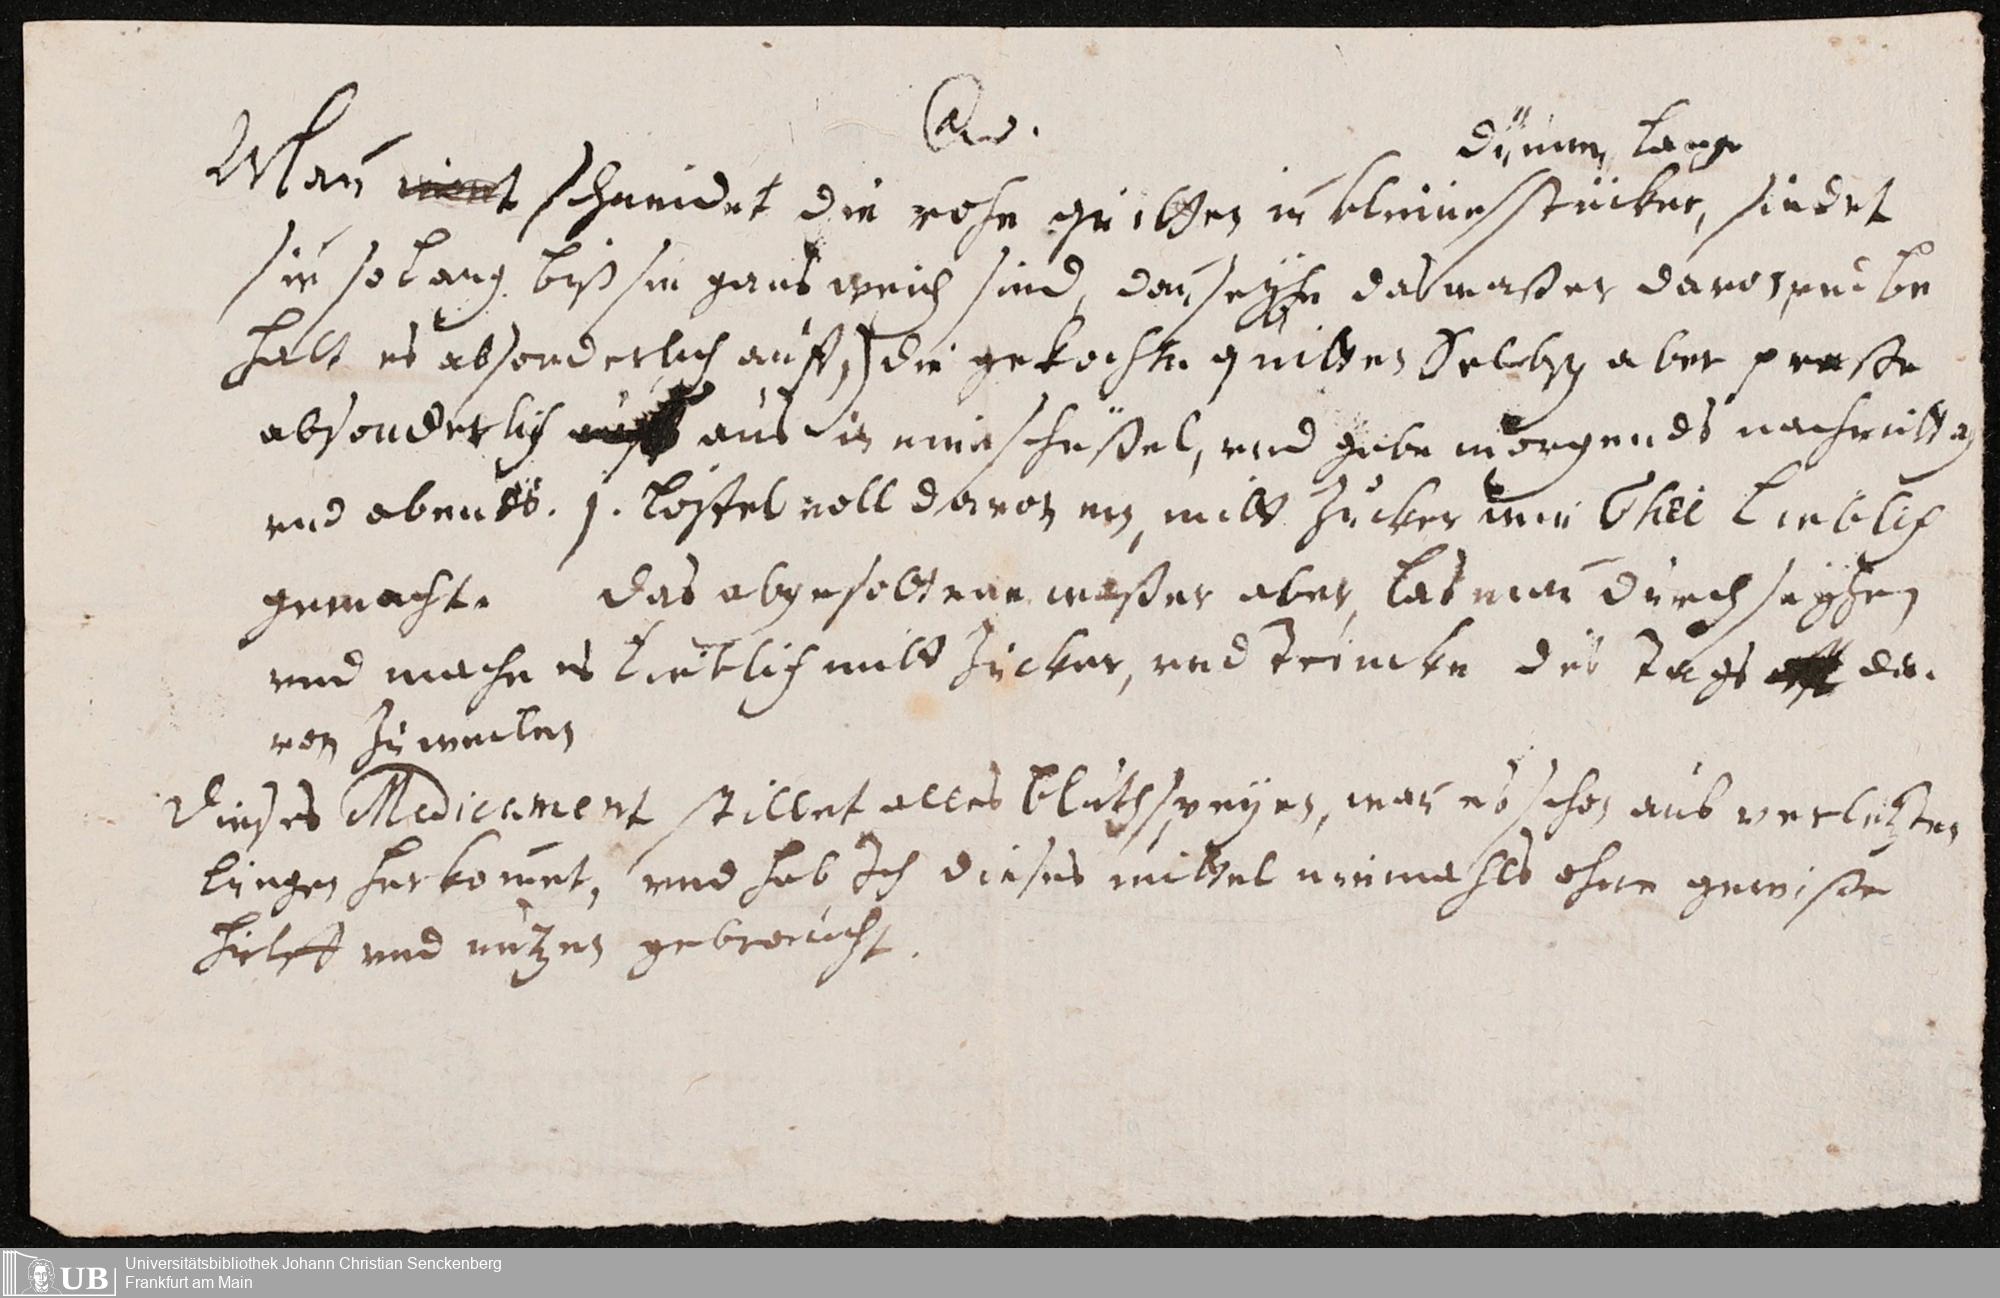 dünne, lange
Man̄ nimt schneidet die rohe quitten in kleine stücker, siedet
sie so lang biß sie gans weich sind, dan̄ seyhe das waßer davon, vnd be
halt es absonderlich auff, die gekochte quitten Selbst aber preße
absonderlich auff aus in eine schüßel, vnd gebe morgends nachmittag
vnd abends. 1. löffel voll davon ein, mitt Zucker wie Thée lieblich
gemacht. das abgesottene waßer aber, las man̄ durch seyhen
vnd mache es lieblich mitt Zucker, vnd trincke des tags offt da.
von Zuweilen
Dieses Medicament stillet alles bluth speyen, wan̄ es schon aus verletzten
lungen herkom̄et, vnd hab Ich dieses mittel niemahls ohne gewiße
hülff vnd nutzen gebraucht.
UB Universitätsbibliothek Johann Christian Senckenberg
Frankfurt am Main